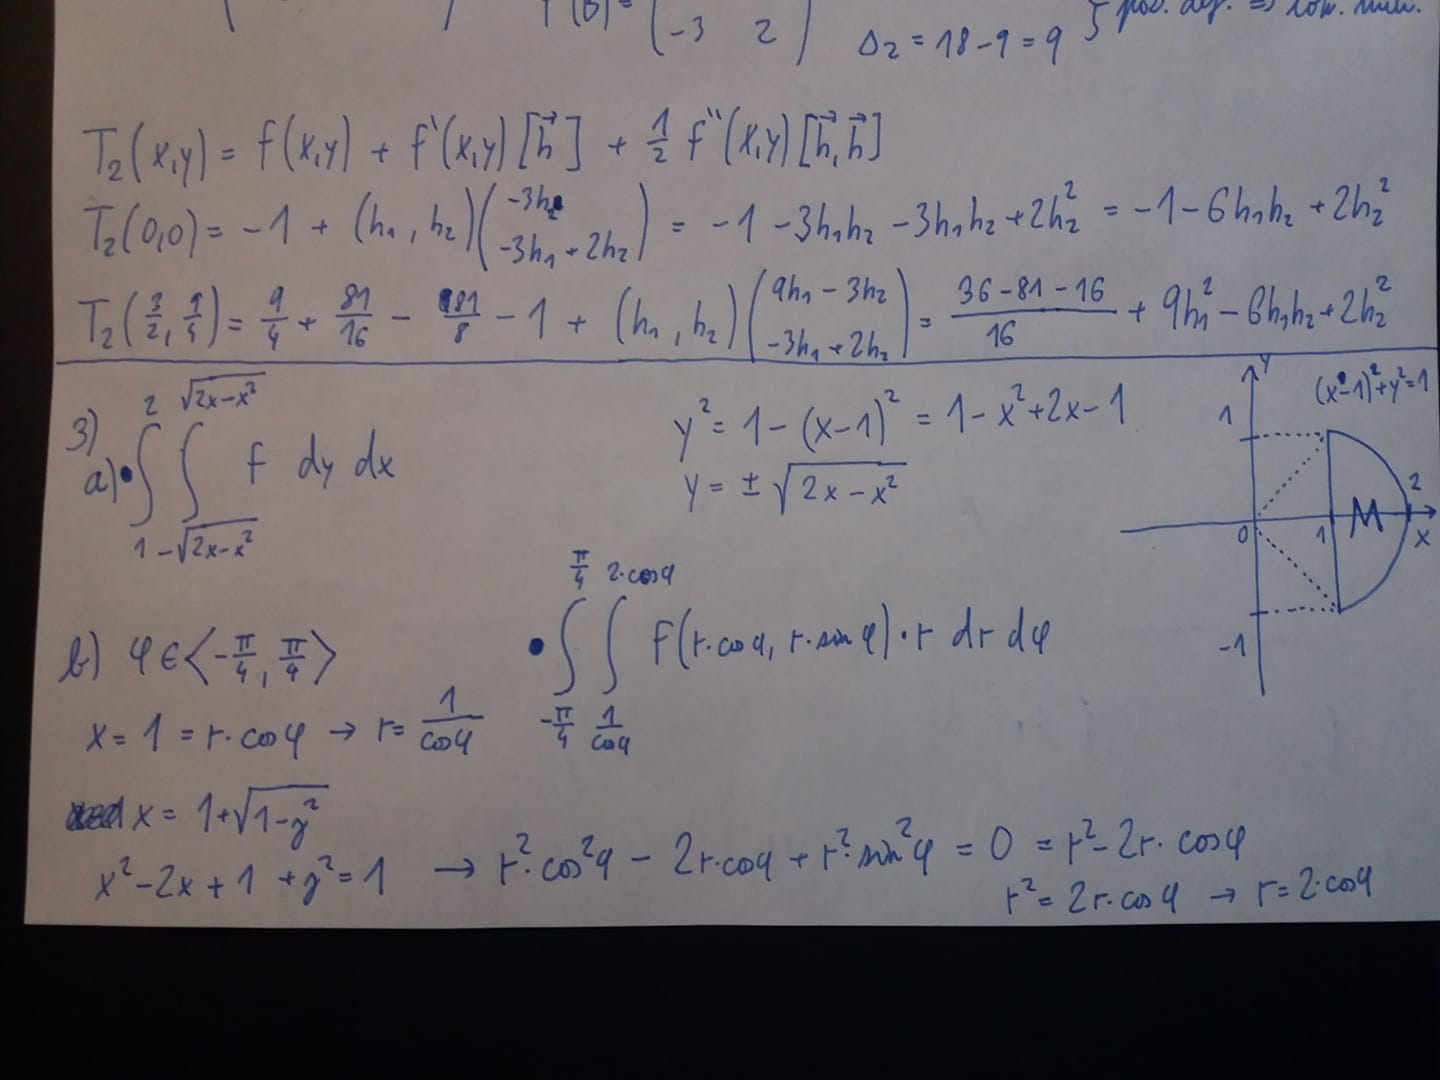 (-3 2)
Δ₂ = 18 - 9 = 9
T₂(x,y) = f(x,y) + f'(x,y)[h⃗] + 1/2 f''(x,y)[h⃗,h⃗]
T₂(0,0) = -1 + (h₁, h₂)(-3h₂ -3h₁+2h₂) = -1 - 3h₁h₂ - 3h₁h₂ + 2h₂² = -1 - 6h₁h₂ + 2h₂²
T₂(3/2, 9/4) = 9/4 + 81/16 - 81/8 - 1 + (h₁, h₂)(9h₁ - 3h₂ -3h₁ + 2h₂) = (36-81-16)/16 + 9h₁² - 6h₁h₂ + 2h₂²
3)
a) • ∫₁² ∫_{-√(2x-x²)}^{√(2x-x²)} f dy dx
y² = 1 - (x-1)² = 1 - x² + 2x - 1
y = ± √(2x - x²)
y
(x-1)²+y²=1
1
2
0 1 M x
-1
b) φ ∈ ⟨-π/4, π/4⟩
• ∫_{-π/4}^{π/4} ∫_{1/cosφ}^{2·cosφ} f(r·cosφ, r·sinφ)·r dr dφ
x = 1 = r·cosφ → r = 1/cosφ
x = 1+√(1-y²)
x² - 2x + 1 + y² = 1 → r²·cos²φ - 2r·cosφ + r²·sin²φ = 0 = r² - 2r·cosφ
r² = 2r·cosφ → r = 2·cosφ